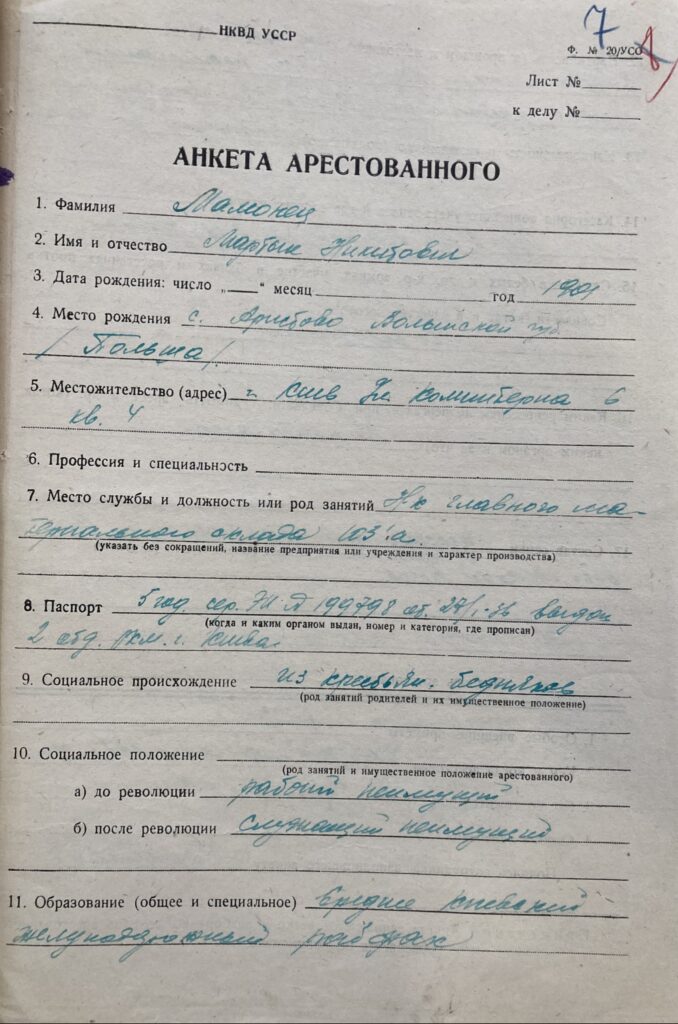 НКВД УССР
7
8
Ф. № 20/УСО
Лист №
к делу №
АНКЕТА АРЕСТОВАННОГО
1. Фамилия Мамонец
2. Имя и отчество Мартын Никитович
3. Дата рождения: число „ “ месяц год 1901
4. Место рождения с. Аристово Волынской губ.
/Польша/.
5. Местожительство (адрес) г. Киев Ул. Коминтерна 6
кв. 4
6. Профессия и специальность
7. Место службы и должность или род занятий Н-к главного ма-
териального склада ЮЗ
(указать без сокращений, название предприятия или учреждения и характер производства)
8. Паспорт 5 год. сер. № 199798 от 27/I-36 выдан
(когда и каким органом выдан, номер и категория, где прописан)
2 отд. РКМ. г. Киева.
9. Социальное происхождение из крестьян. бедняков
(род занятий родителей и их имущественное положение)
10. Социальное положение
(род занятий и имущественное положение арестованного)
а) до революции рабочий неимущий
б) после революции служащий неимущий
11. Образование (общее и специальное) среднее Киевский
железнодорожный рабфак